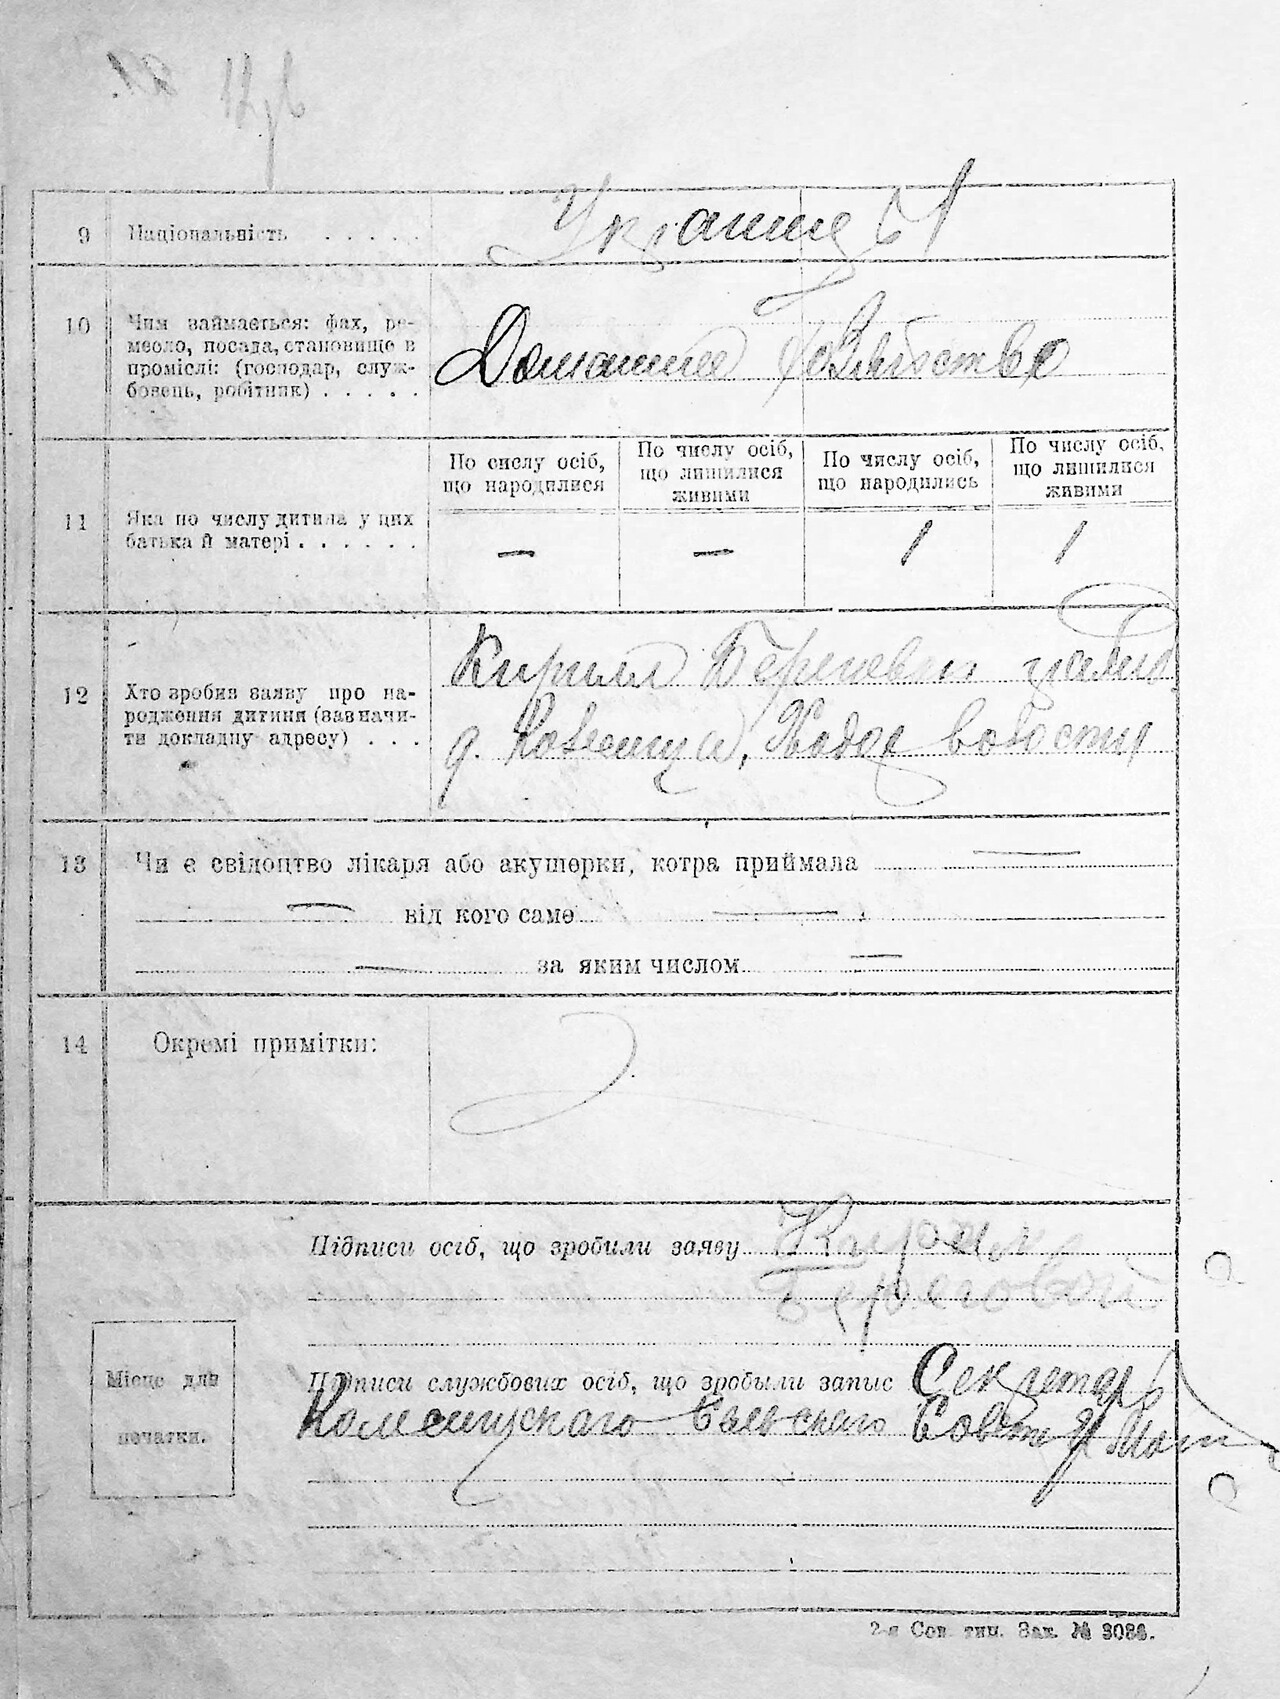 9 Національність . . . . . Украинцы
10 Чим займається: фах, ре-
месло, посада, становище в
промислі: (господар, служ-
бовець, робітник) . . . . .
Домашнее Хозяйство
По числу осіб,
що народилися
По числу осіб,
що лишилися
живими
По числу осіб,
що народились
По числу осіб,
що лишилися
живими
11 Яка по числу дитина у цих
батька й матері . . . . . .
— — 1 1
12 Хто зробив заяву про на-
родження дитини (зазначи-
ти докладну адресу) . . .
Кирилл Береговой
волости
13 Чи є свідоцтво лікаря або акушерки, котра приймала —
— від кого саме —
— за яким числом —
14 Окремі примітки:
Підписи осіб, що зробили заяву Кирил
Береговой
Місце для
печатки.
Підписи службових осіб, що зробыли запыс Секретарь
Сельскаго Совета
2-я Сов. тип. Зак. № 3086.